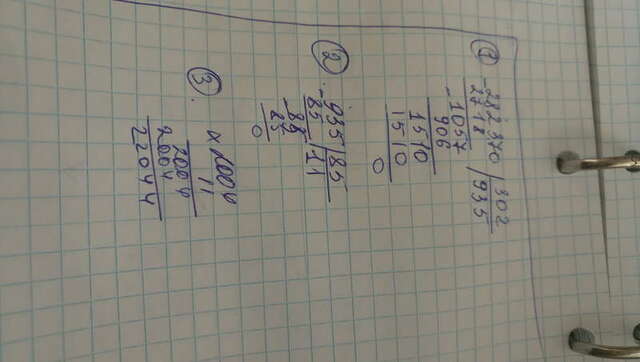 ①
-282370 / 302
2718 / 935
-1057
906
1510
1510
0
②
-935 / 85
85 / 11
-85
85
0
③
x 2004
11
2004
2004
22044